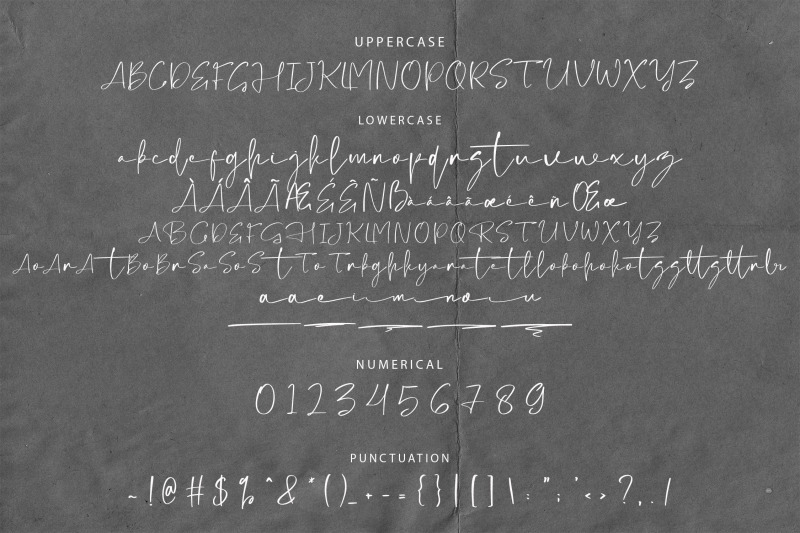 UPPERCASE
ABCDEFGHIJKLMNOPQRSTUVWXYZ
LOWERCASE
abcdefghijklmnopqrstuvwxyz
ÀÁÂÃÆÉÊÑßàáâãæéêñŒœ
ABCDEFGHIJKLMNOPQRSTUVWXYZ
a a e i m n o r u
NUMERICAL
0123456789
PUNCTUATION
~ ! @ # $ % ^ & * ( ) _ + - = { } | [ ] \ : " ; ' < > ? , . /